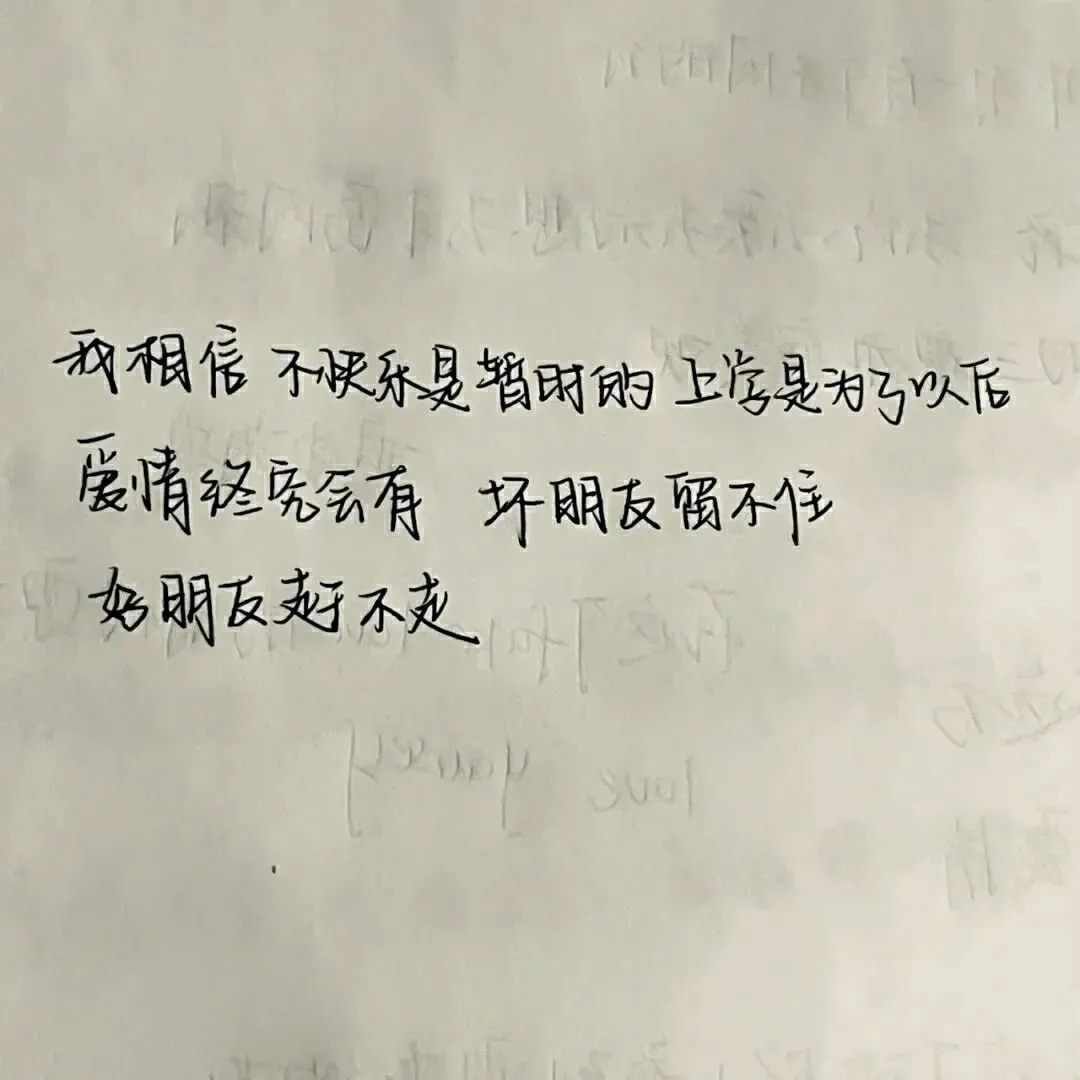 我相信 不快乐是暂时的 上学是为了以后
爱情终究会有 坏朋友留不住
好朋友赶不走